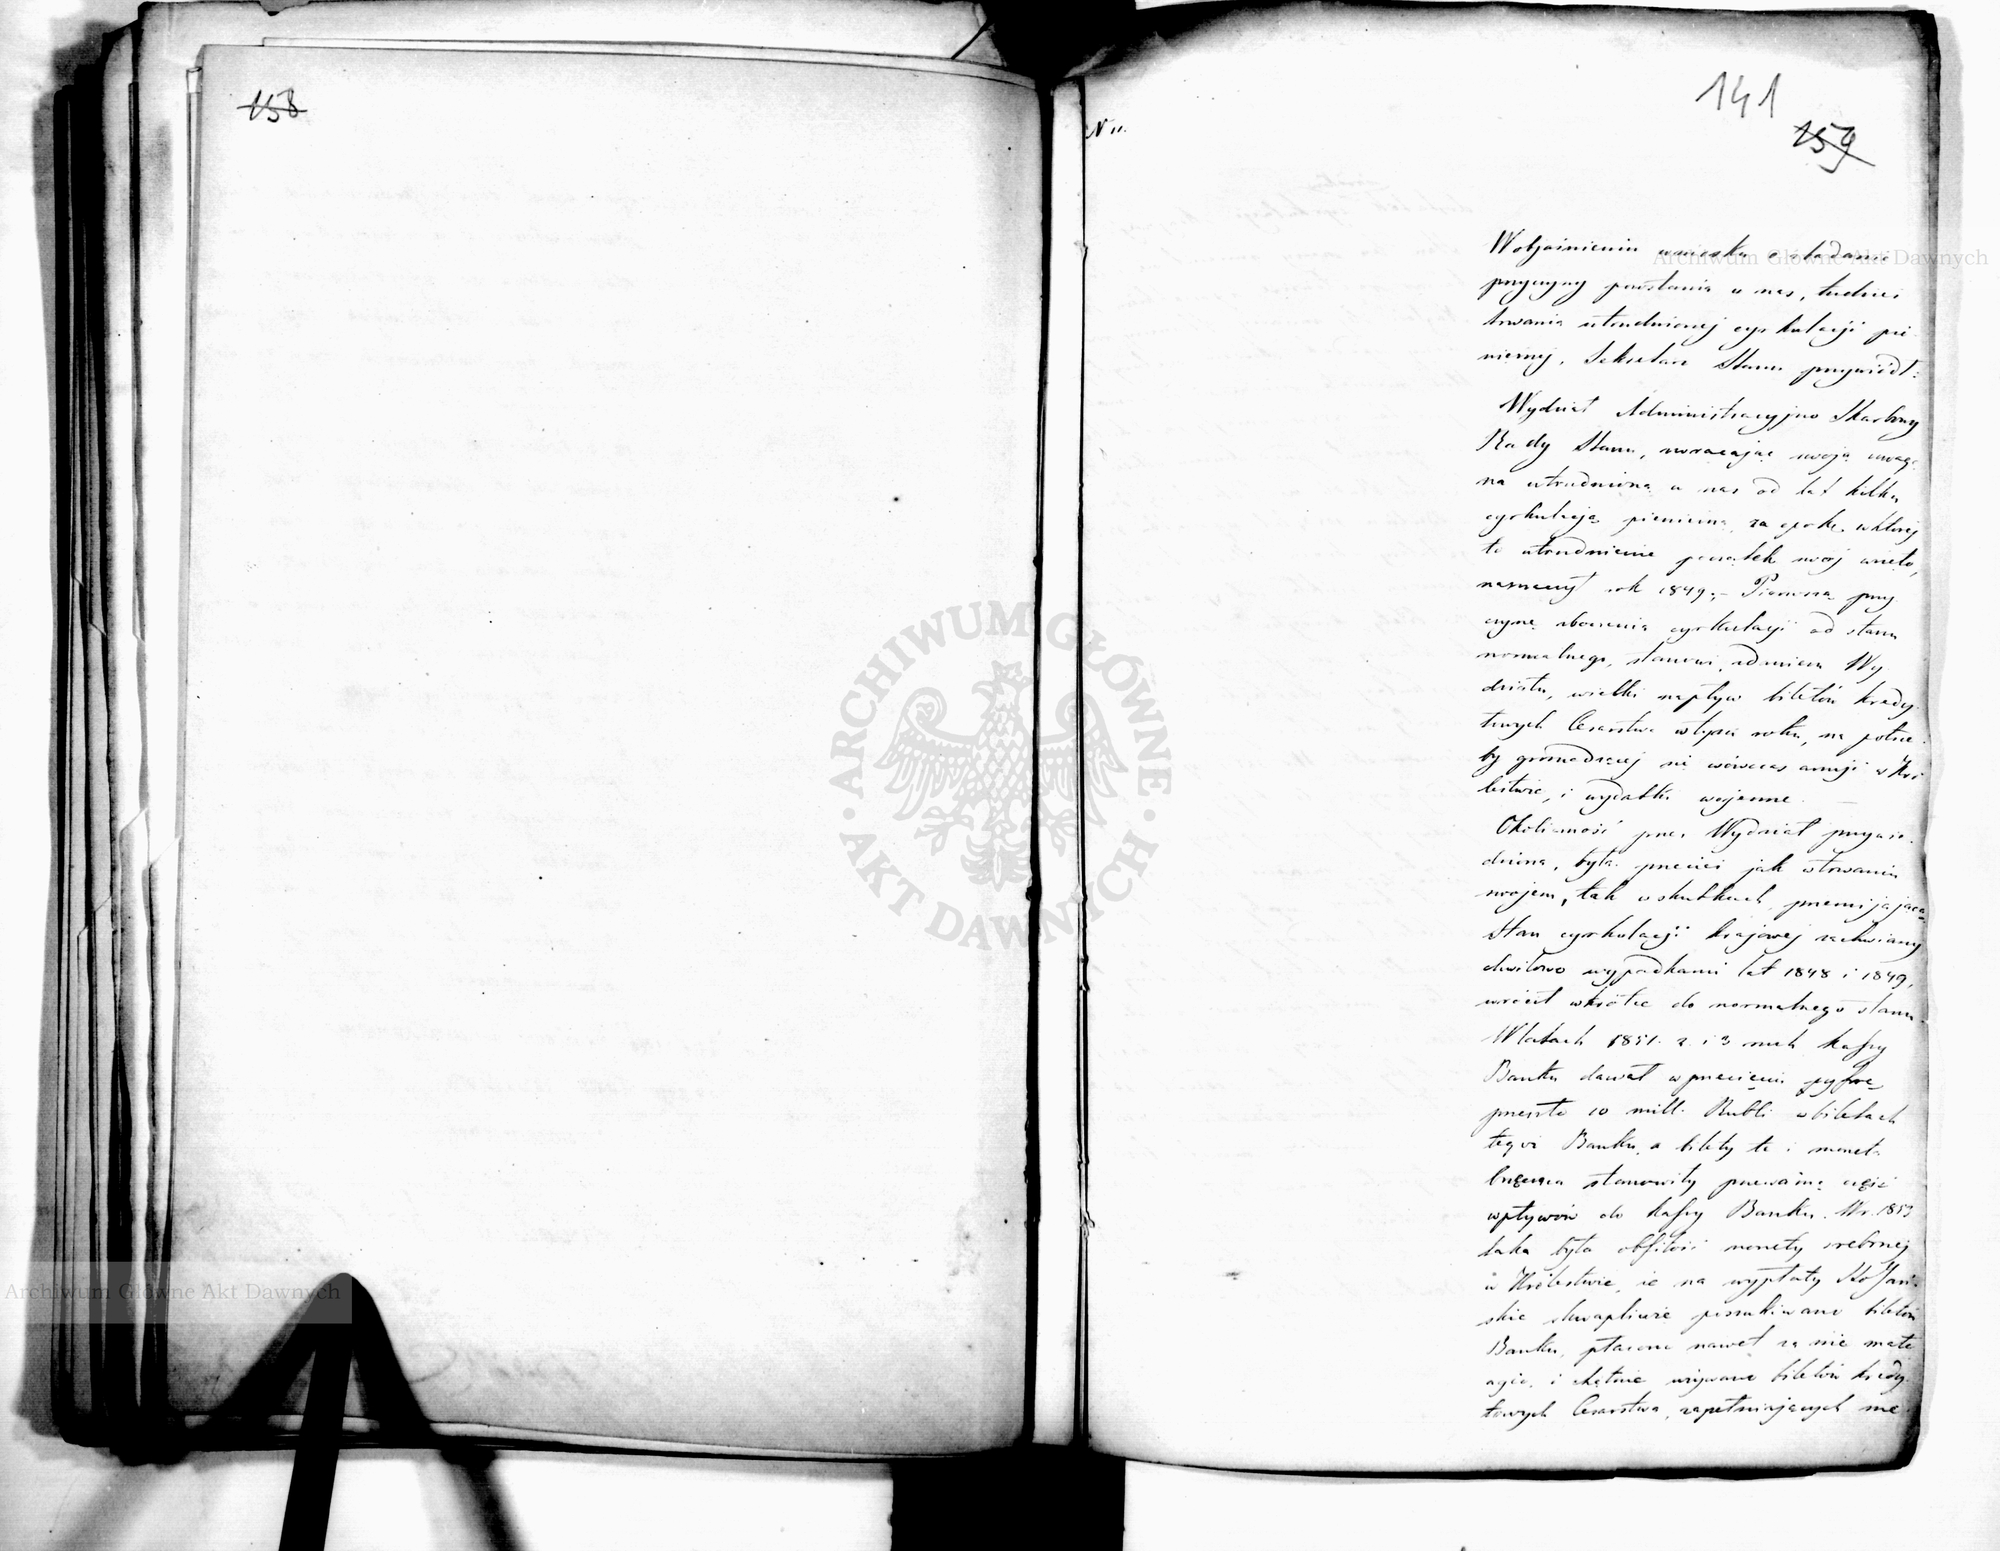 158
N 11.
141
159
W objaśnieniu wniosku o zbadanie
przyczyny powstania u nas, tudzież
trwania utrudnionej cyrkulacji pie-
niężnej, Sekretarz Stanu przywiódł:
Wydział Administracyjno Skarbowy
Rady Stanu, zwracając swoją uwagę
na utrudnioną u nas od lat kilku
cyrkulacją pieniężną, za epokę w której
to utrudnienie początek swój wzięło,
naznaczył rok 1849.– Pierwszą przy-
czynę zboczenia cyrkulacji od stanu
normalnego, stanowi, zdaniem Wy-
działu, wielki napływ biletów kredy-
towych Cesarstwa w tymże roku, na potrze-
by gromadzącej się wówczas armji w Kró-
lestwie, i wydatki wojenne.
Okoliczność przez Wydział przywie-
dziona, była przecież jak w trwaniu
swojem, tak w skutkach przemijającą.
Stan cyrkulacji krajowej zachwiany
chwilowo wypadkami lat 1848 i 1849,
wrócił wkrótce do normalnego stanu.
W latach 1851. 2. i 3 ruch kassy
Banku dawał w przecięciu cyfrę
przeszło 10 mill. Rubli w biletach
tegoż Banku, a bilety te i moneta
brzęcząca stanowiły przeważną część
wpływów do kassy Banku. W r. 1853
taka była obfitość monety srebrnej
w Królestwie, że na wypłaty
skie skwapliwie poszukiwano biletów
Banku, płacono nawet za nie małe
agio, i chętnie używano biletów kredy-
towych Cesarstwa, zapełniających nie-
ARCHIWUM GŁÓWNE · AKT DAWNYCH ·
Archiwum Główne Akt Dawnych
Archiwum Główne Akt Dawnych